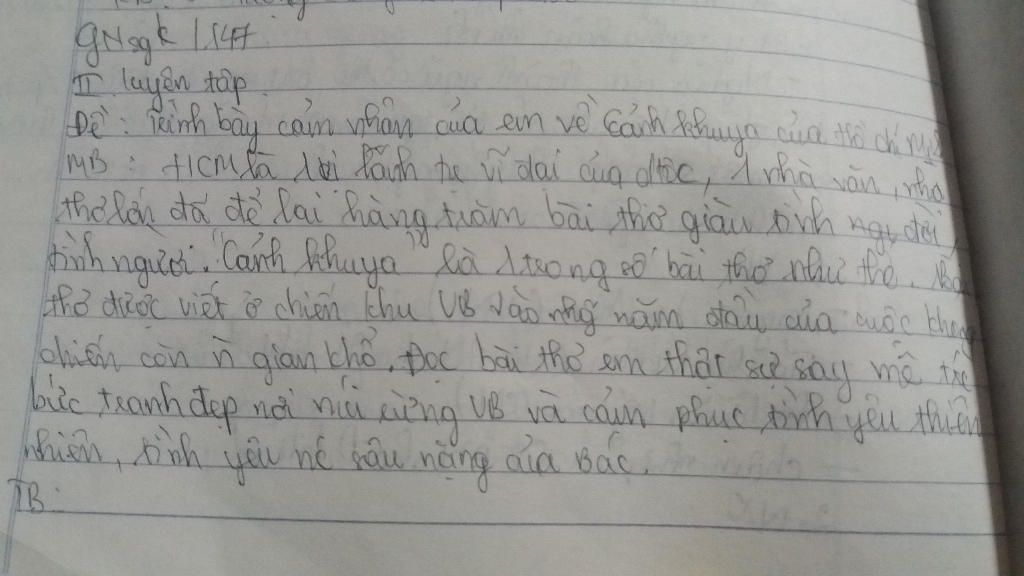 gNsgk 1 SGK
II luyện tập
Đề: Trình bày cảm nhận của em về Cảnh khuya của Hồ Chí Minh
MB: HCM là 1 vị lãnh tụ vĩ đại của dtộc, 1 nhà văn, nhà
thơ lớn đã để lại hàng trăm bài thơ giàu tình đời,
tình người. "Cảnh khuya" là 1 trong số bài thơ như thế. Bài
thơ được viết ở chiến khu VB vào nhg năm đầu của cuộc kháng
chiến còn n gian khổ. Đọc bài thơ em thật sự say mê trc
bức tranh đẹp nơi núi rừng VB và cảm phục tình yêu thiên
nhiên, tình yêu nc sâu nặng của Bác.
TB: